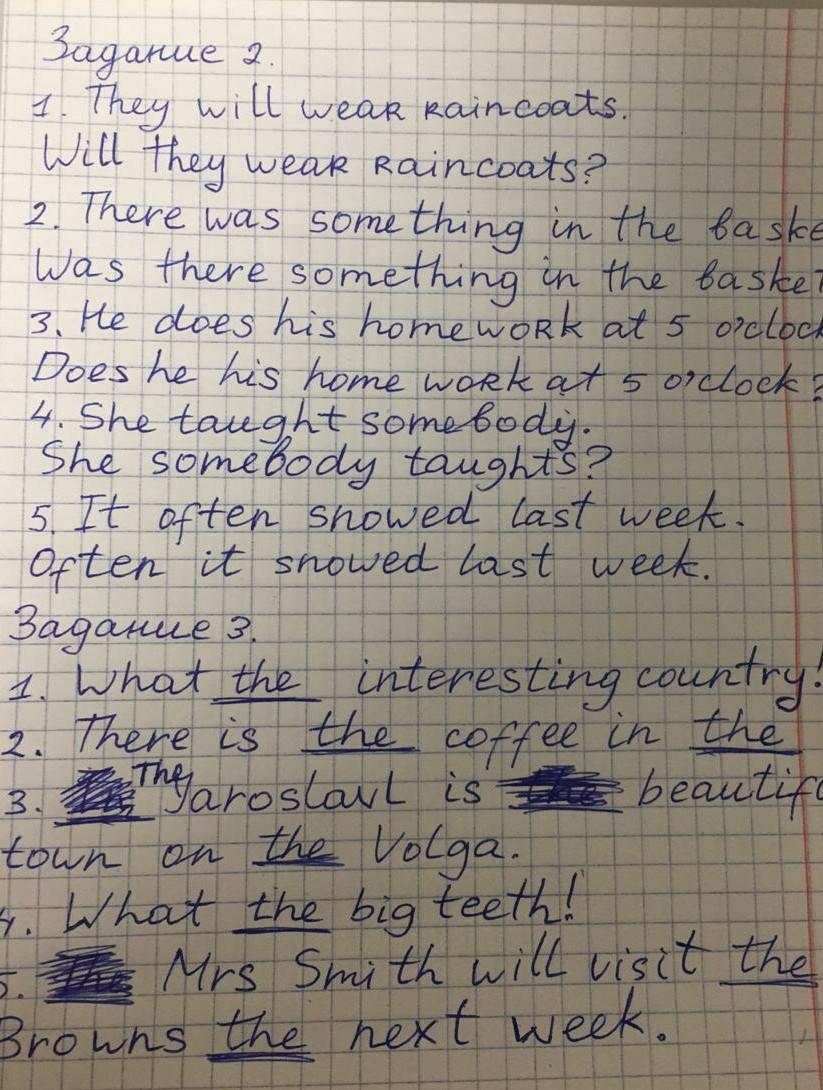 Задание 2.
1. They will wear raincoats.
Will they wear raincoats?
2. There was something in the baske
Was there something in the basket
3. He does his homework at 5 o'clock
Does he his home work at 5 o'clock?
4. She taught somebody.
She somebody taughts?
5. It often snowed last week.
Often it snowed last week.
Задание 3.
1. What the interesting country!
2. There is the coffee in the
3. The Yaroslavl is beautifu
town on the Volga.
4. What the big teeth!
5. Mrs Smith will visit the
Browns the next week.